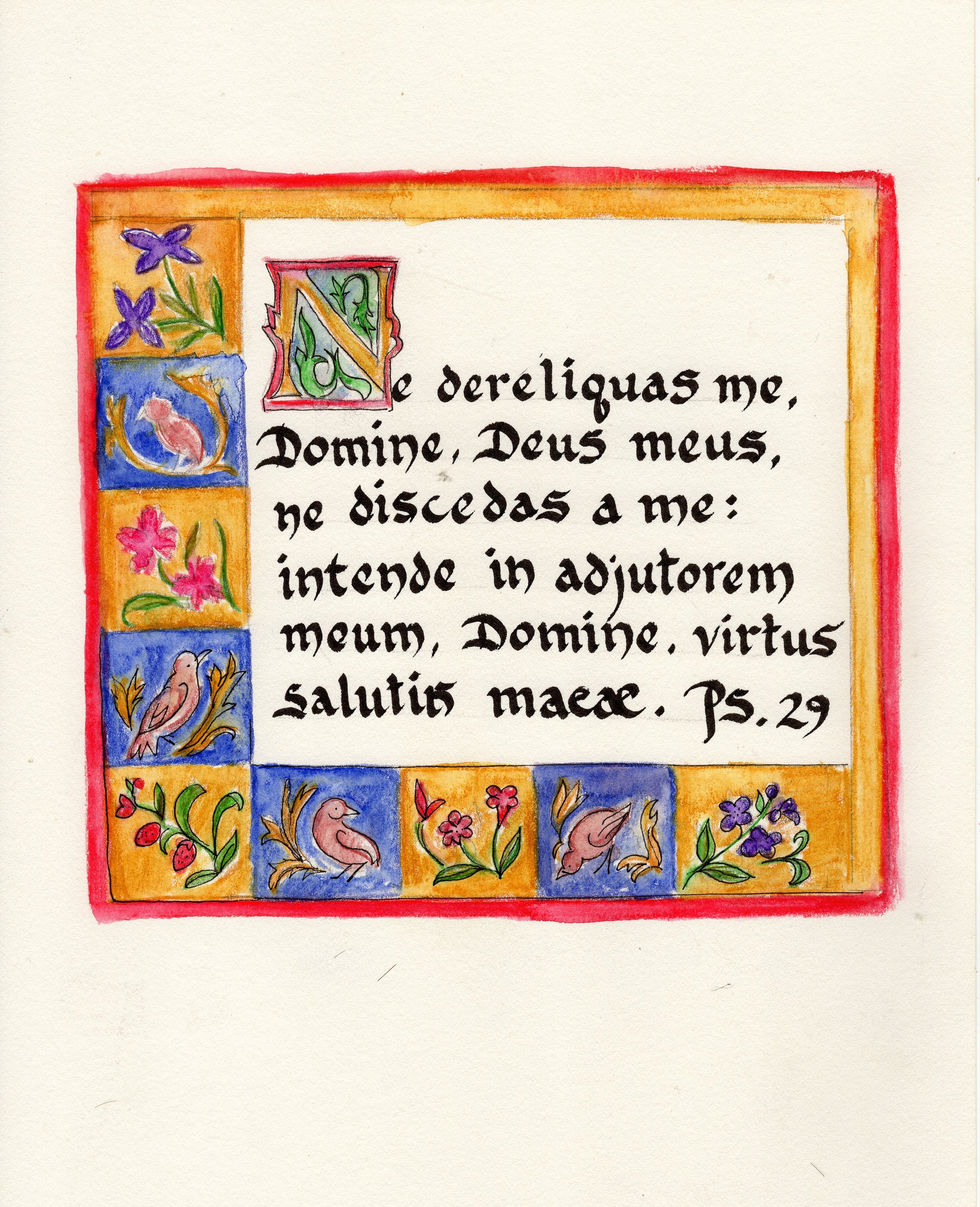 Ne dereliquas me,
Domine, Deus meus,
ne discedas a me:
intende in adjutorem
meum, Domine, virtus
salutis maeæ. Ps. 29